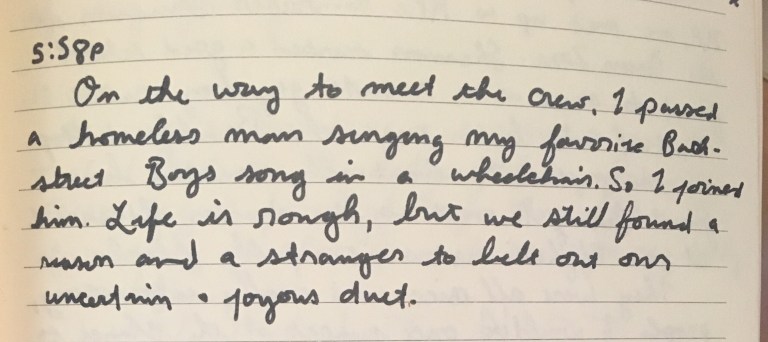 5:58p
On the way to meet the crew, I passed
a homeless man singing my favorite Back-
street Boys song in a wheelchair. So I joined
him. Life is rough, but we still found a
reason and a stranger to belt out our
uncertain & joyous duet.